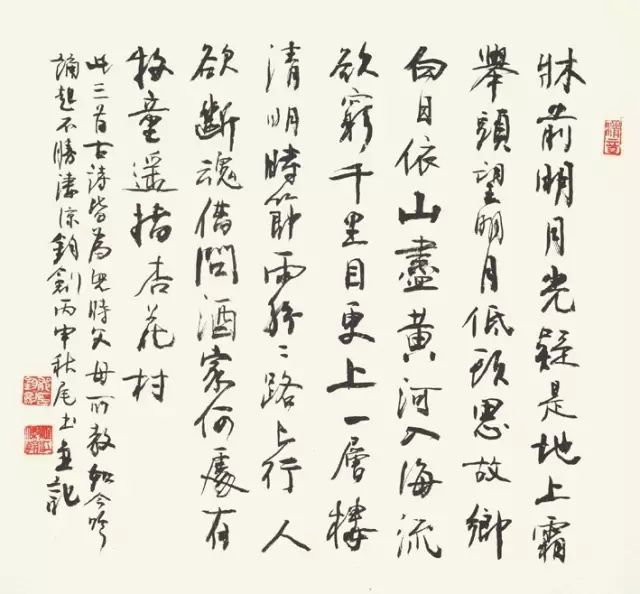 牀前明月光疑是地上霜
舉頭望明月低頭思故鄉
白日依山盡黃河入海流
欲窮千里目更上一層樓
清明時節雨紛〻路上行人
欲斷魂借問酒家何處有
牧童遥指杏花村
此三首古詩皆為兒時父母所教如今吟
誦起不勝淒涼丙申秋尾書並記